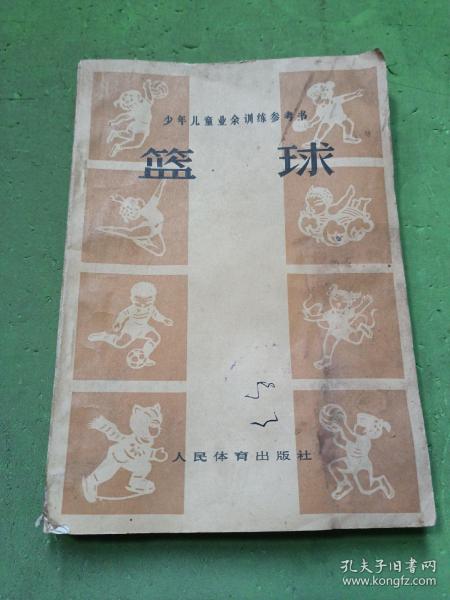 少年儿童业余训练参考书
篮球
人民体育出版社
孔夫子旧书网
www.kongfz.com